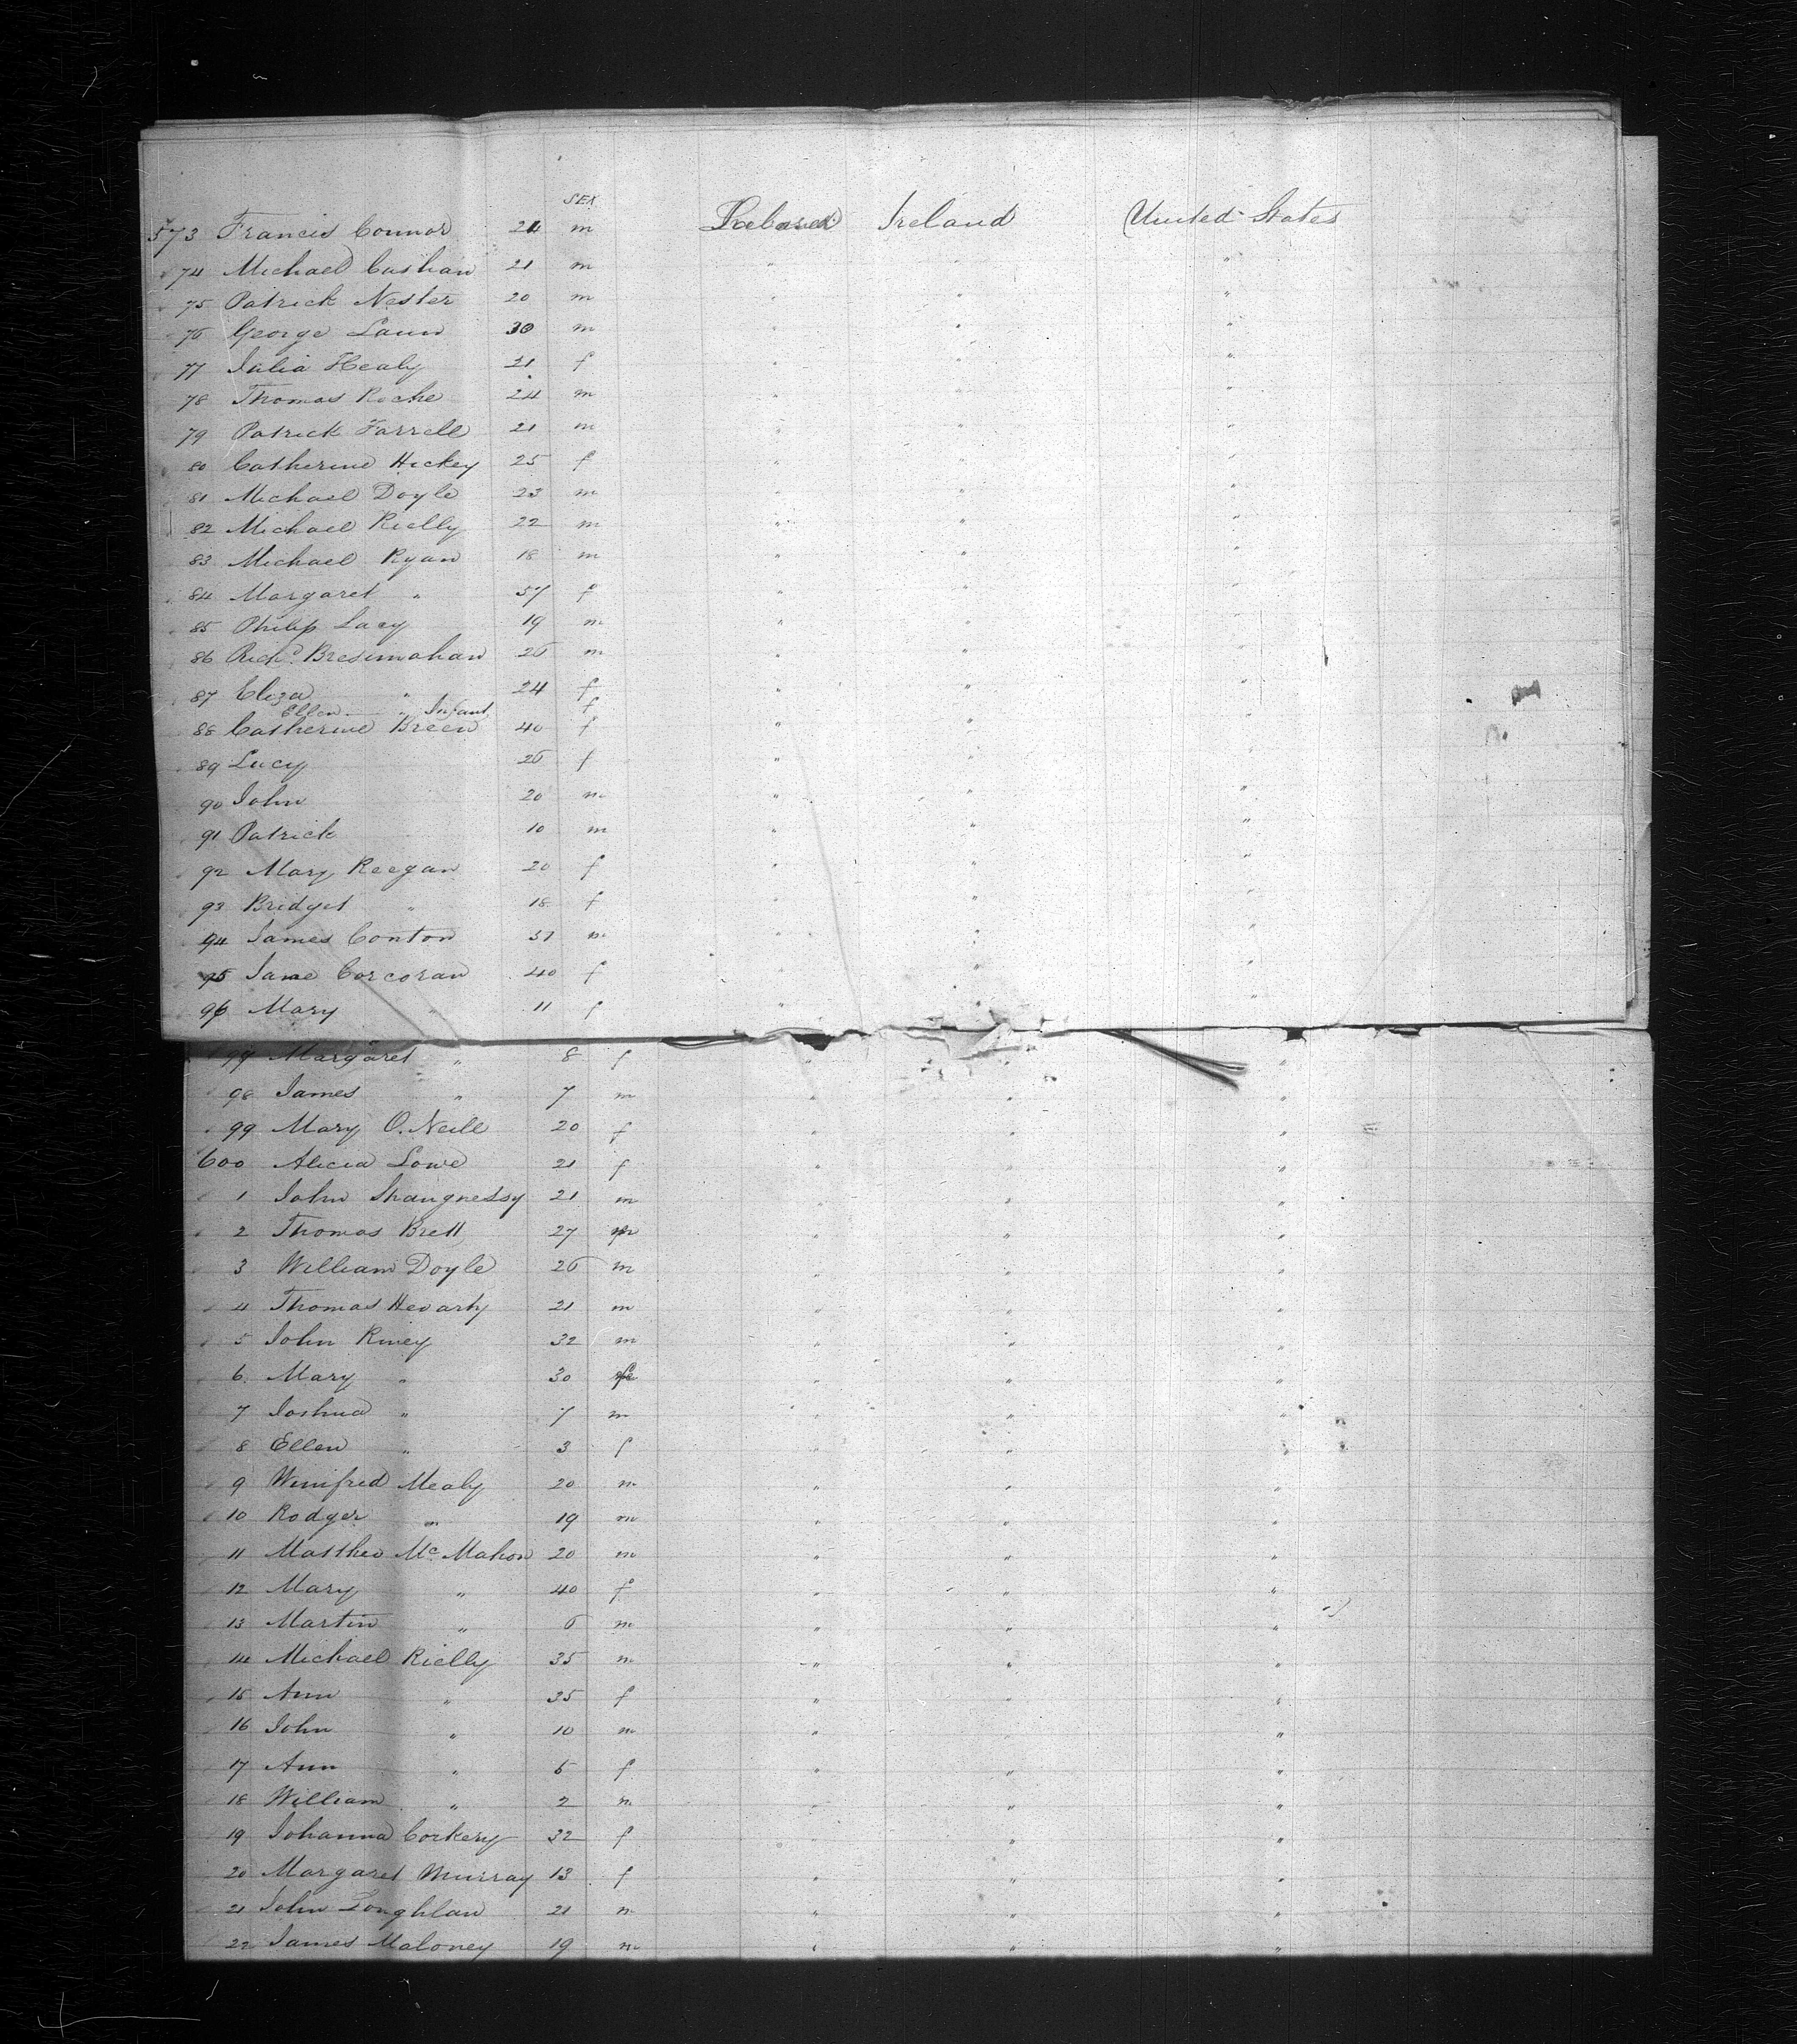 SEX
573 Francis Connor 24 m Ireland United States
74 Michael Cashan 21 m " " "
75 Patrick Nester 20 m " " "
76 George Laun 30 m " " "
77 Julia Healy 21 f " " "
78 Thomas Roche 24 m " " "
79 Patrick Farrell 21 m " " "
80 Catherine Hickey 25 f " " "
81 Michael Doyle 23 m " " "
82 Michael Rielly 22 m " " "
83 Michael Ryan 18 m " " "
84 Margaret " 57 f " " "
85 Philip Lacy 19 m " " "
86 Richd. Bresnmahan 26 m " " "
87 Eliza " 24 f " " "
Ellen " Infant f
88 Catherine Breen 40 f " " "
89 Lucy 26 f " " "
90 John 20 m " " "
91 Patrick 10 m " " "
92 Mary Reegan 20 f " " "
93 Bridget " 18 f " " "
94 James Conton 37 m " " "
95 Jane Corcoran 40 f " " "
96 Mary " 11 f " " "
Margaret " 8 f " "
98 James " 7 m " " "
99 Mary O.Neill 20 f " " "
600 Alicia Lowe 21 f " " "
1 John Shaugnessy 21 m " " "
2 Thomas Brett 27 m " " "
3 William Doyle 26 m " " "
4 Thomas Hevarty 21 m " " "
5 John Riney 32 m " " "
6. Mary " 30 f " " "
7 Joshua " 7 m " " "
8 Ellen " 3 f " " "
9 Winifred Mealy 20 m " " "
10 Rodger " 19 m " " "
11 Matthew Mc Mahon 20 m " " "
12 Mary " 40 f " " "
13 Martin " 6 m " " "
14 Michael Rielly 35 m " " "
15 Ann " 35 f " " "
16 John " 10 m " " "
17 Ann " 5 f " " "
18 William " 2 m " " "
19 Johanna Corkery 32 f " " "
20 Margaret Murray 13 f " " "
21 John Loughlan 21 m " " "
22 James Maloney 19 m " " "